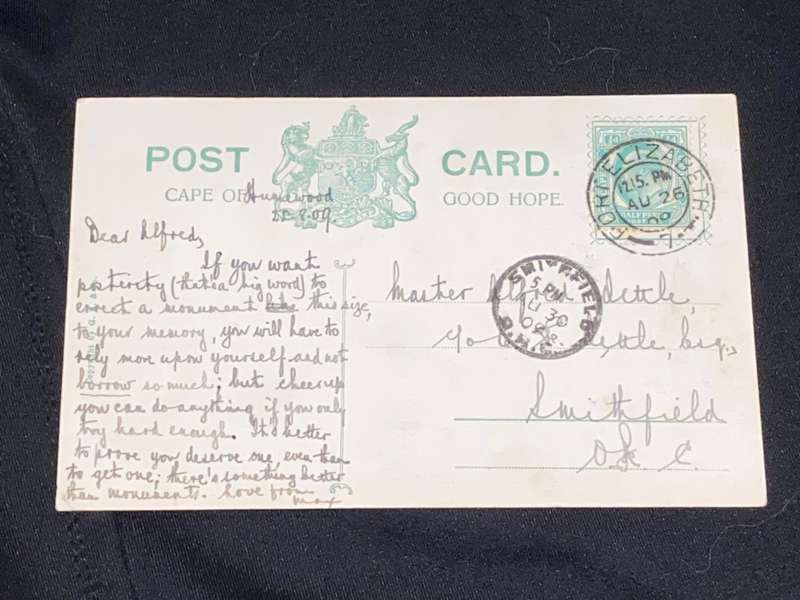 POST CARD.
CAPE OF GOOD HOPE.
Humewood
25.8.09
Dear Alfred,
If you want
posterity (that's a big word) to
errect a monument like this size,
to your memory, you will have to
rely more upon yourself and not
borrow so much; but cheer up
you can do anything if you only
try hard enough. It's better
to prove you deserve one, even than
to get one; there's something better
than monuments. Love from
Max
PORT ELIZABETH
12.15. PM
AU 26
09
HALFPENNY
SMITHFIELD
5 PM
AU 30
09
Master
Esq.,
Smithfield
O.R.C.